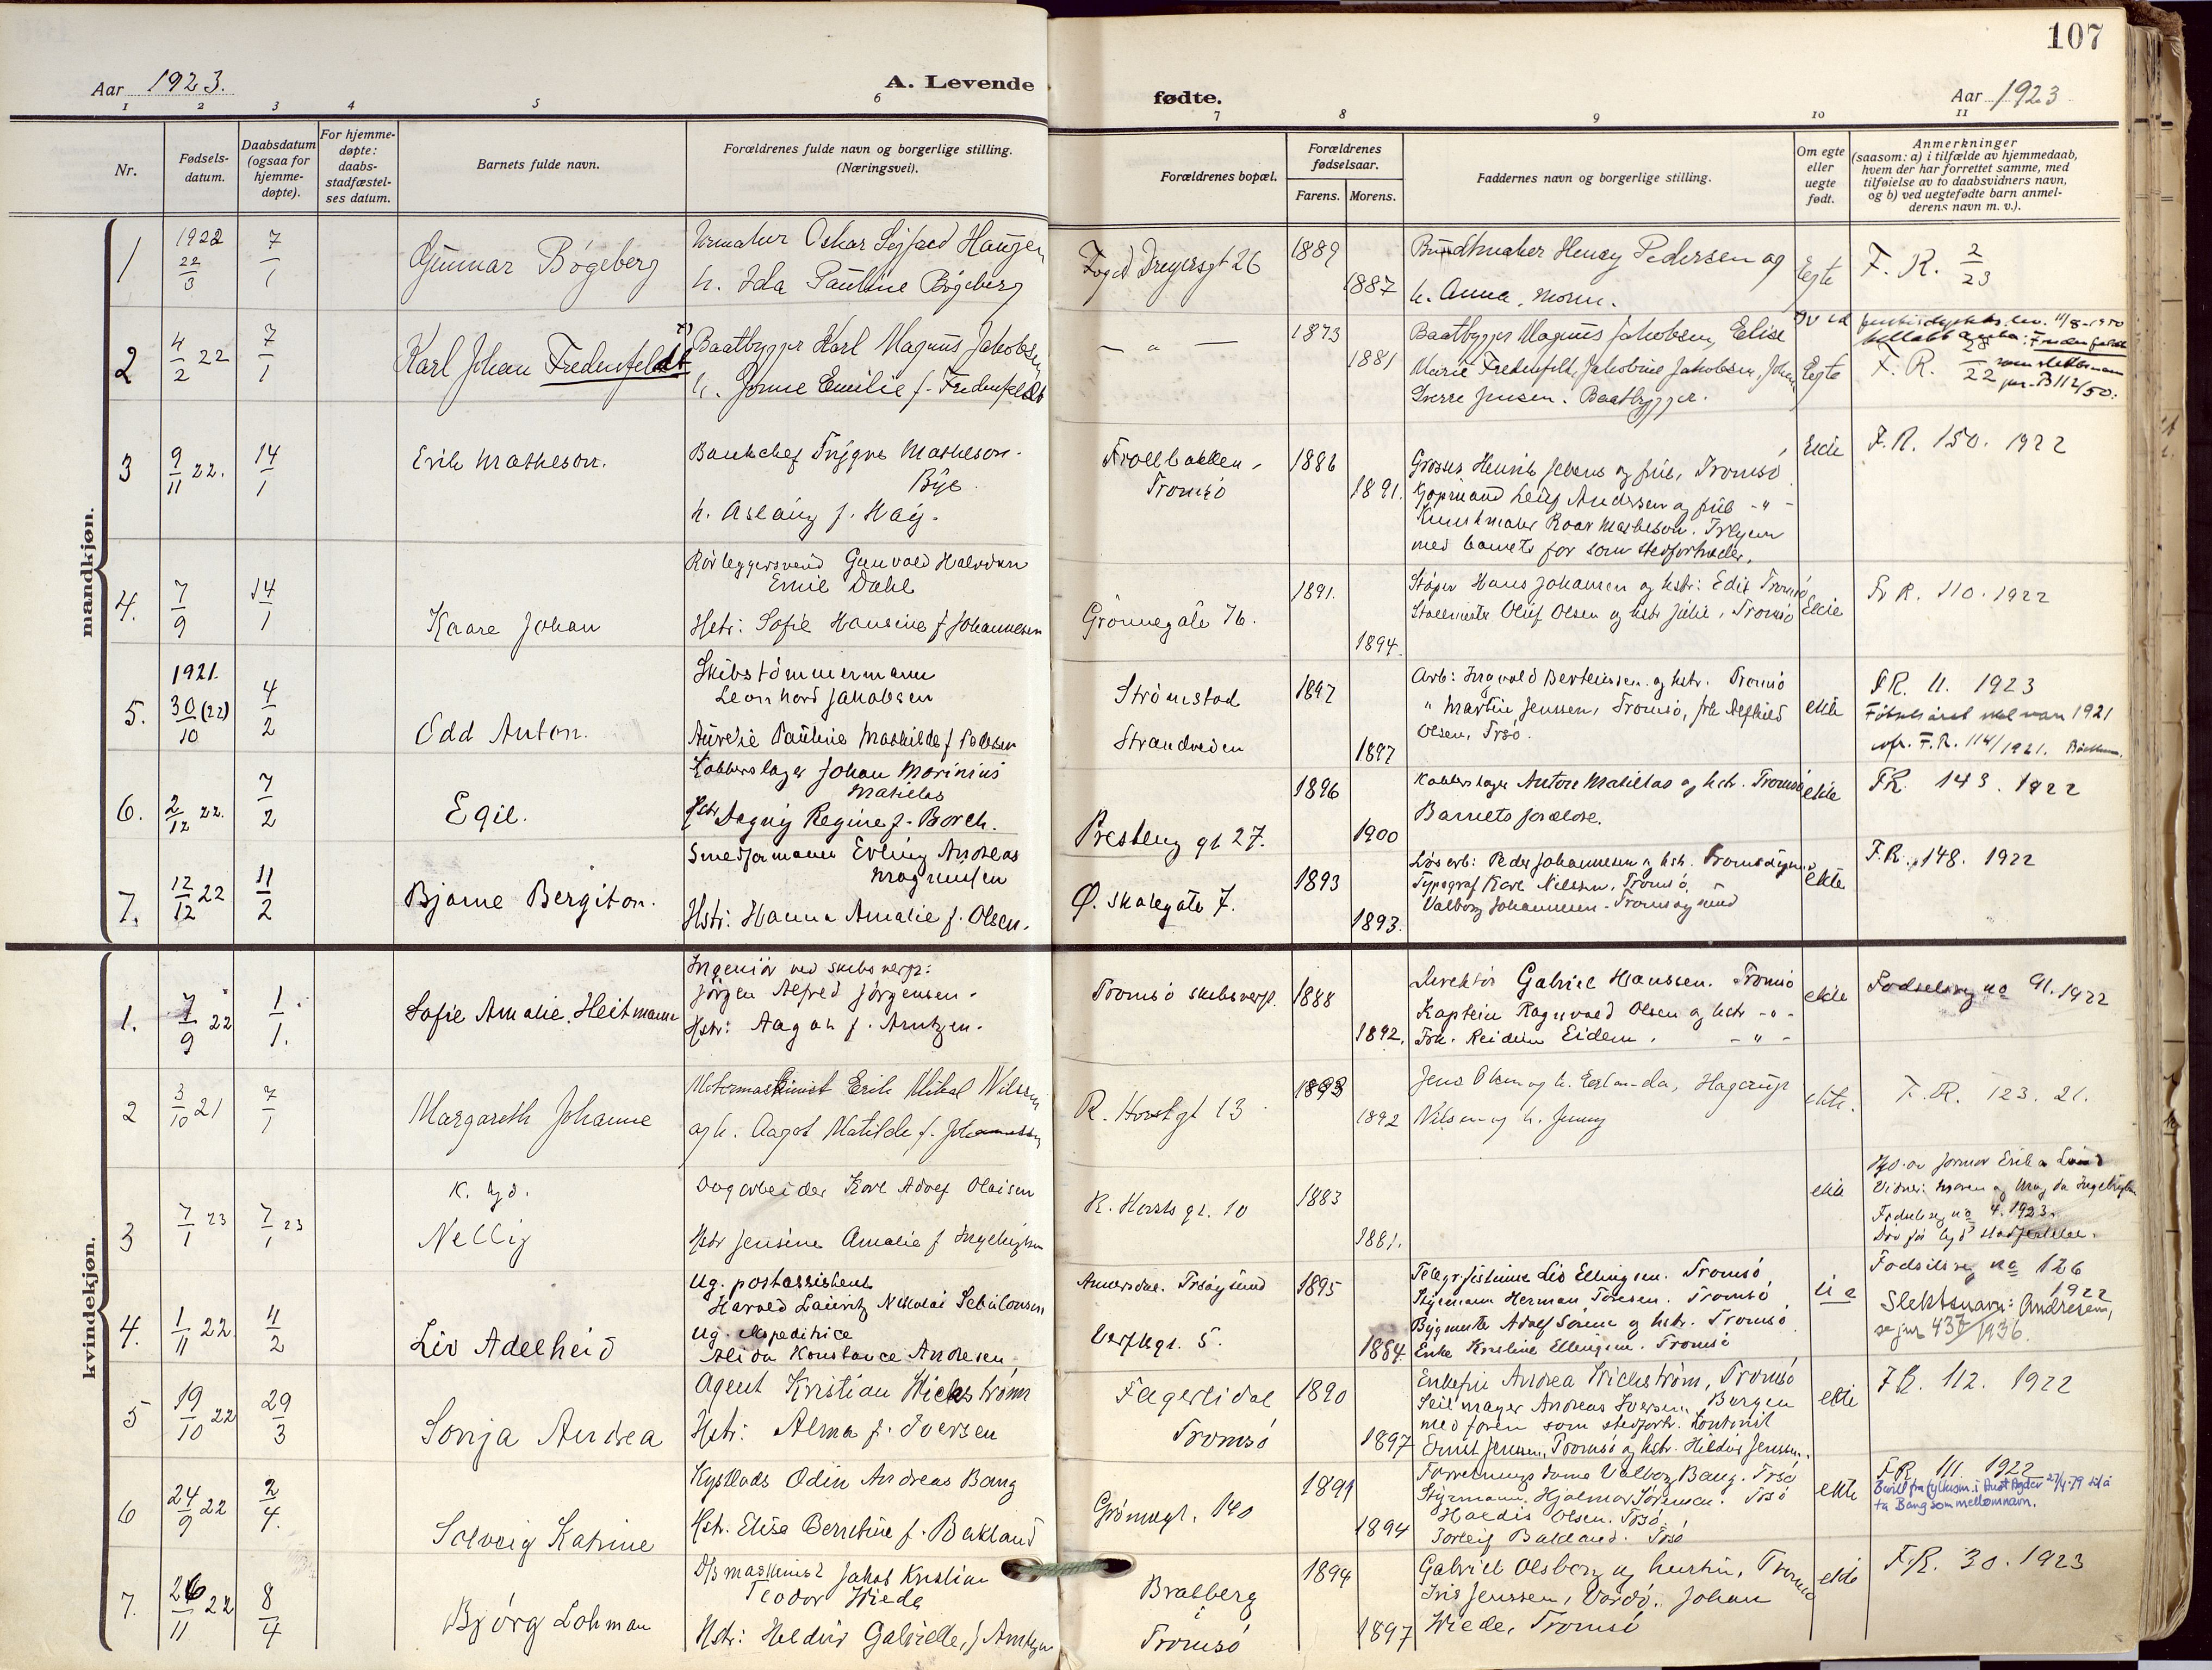 107
Aar 1923.
A. Levende
fødte.
Aar 1923
1 2 3 4 5 6 7 8 9 10 11
Nr.
Fødsels-
datum.
Daabsdatum
(ogsaa for
hjemme-
døpte).
For hjemme-
døpte:
daabs-
stadfæstel-
ses datum.
Barnets fulde navn.
Forældrenes fulde navn og borgerlige stilling.
(Næringsvei).
Forældrenes bopæl.
Forældrenes
fødselsaar.
Farens. Morens.
Faddernes navn og borgerlige stilling.
Om egte
eller
uegte
født.
Anmerkninger
(saasom: a) i tilfælde av hjemmedaab,
hvem der har forrettet samme, med
tilføielse av to daabsvidners navn,
og b) ved uegtefødte barn anmel-
derens navn m. v.).
mandkjøn.
1
1922
22/3
7/1
Gunnar Bøgeberg
Urmaker Oskar Haugen
h. Ida Pauline Bøgeberg
Foged Dreyersgt 26
1889
1887
Bundtmaker Henry Pedersen og
h. Anna, moren.
Egte
F. R. 2/23
2
4/2 22
7/1
Karl Johan Fredenfeldt
Baatbygger Karl Magnus Jakobsen
h. Emilie f. Fredenfeldt
— " —
1873
1881
Baatbygger Magnus Jakobsen, Elise
Marie Fredenfeldt, Jakobine Jakobsen, Johan
Sverre Jensen. Baatbygger.
Egte
11/8-1950
F. R. 28/22
B 112/50.
3
9/11 22.
14/1
Erik Matheson.
Bankchef Trygve Matheson.
h. Aslaug f.
Trollbakken,
Tromsø
1886
1891.
Grosser Henrik og frue, Tromsø
Kjøpmand Leif Andersen og frue - " -
Kunstmaler Roar Matheson.
med barnets far som stedfortræder.
Ekte
F. R. 150. 1922
4.
7/9
14/1
Kaare Johan
Rørleggersvend Gunvald Halvdan
Emil Dahl
Hstr: Sofie Hansine f Johannesen
Grønnegate 76.
1891.
1894.
Støper Hans Johansen og hstr: Tromsø
Oluf Olsen og hstr Julie, Tromsø
Ekte
F. R. 110. 1922
5.
1921.
30/10 (22)
4/2
Odd Anton.
Skibstømmermann
Leonhard Jakobsen
Aurelie Pauline Mathilde f Pedersen
Strømstad
Strandveien
1897
1897
Arb: Ingvald Berteussen og hstr. Tromsø
" Martin Jenssen, Tromsø, frk Alfhild
Olsen, Trsø.
ekte
F.R. 11. 1923
Fødselsåret skal være 1921
F.R. 114/1921.
6.
2/12 22.
7/2
Egil.
Kobberslager Johan Marinius
Hstr Dagny Regine f. Borch.
Presteng gt 27.
1896
1900
Kobberslager Anton og hstr. Tromsø
Barnets forældre.
ekte
F.R. 143. 1922
7.
12/12 22
11/2
Bjarne Bergiton.
Smedformann Erling Andreas
Magnussen
Hstr: Hanna Amalie f. Olsen.
Ø. Skolegate 7.
1893
1893.
Løsarb: Peder Johannesen og hstr.
Typograf Karl Nilssen, Tromsø,
Valborg Johannesen
ekte
F.R. 148. 1922
kvindekjøn.
1.
7/9 22
1/1.
Sofie Amalie Heitmann
Ingeniør ved skibsverft:
Jørgen Alfred Jørgensen.
Hstr: Aagot f. Arntzen.
Tromsø skibsverft.
1888
1892.
Direktør Gabriel Hanssen. Tromsø
Kaptein Ragnvald Olsen og hstr - " -
Frk. Reidun Eidem. - " -
ekte
Fødselsreg no 91. 1922
2
3/10 21
7/1
Margareth Johanne
Motormaskinist Erik Mikal Nilsen
og h. Aagot Matilde f. Johannessen
R. Horstgt 13
1893
1892
Jens Olsen og h. Hagerup
Nilsen og h. Jenny
ekte.
F. R. 123. 21.
3
7/1 23
7/1 23
Nelly
Dagarbeider Karl Adolf Olaisen
Hstr Jensine Amalie f Ingebrigtsen
R. Horsts gt. 10
1883
1881.
ekte
Hjd. av formor Erika Lund
Fødselsreg no 4. 1923.
4.
1/11 22
11/2
Liv Adelheid
Ug. postassistent
Harald Lauritz Nikolai
Ug. ekspeditrice
Alida Konstance Andresen
Verftsgt. 5.
1895
1884.
Lis Ellingsen. Tromsø
Styrmann Herman Tønesen. Tromsø
Bygmester Adolf og hstr. Tromsø.
Enke Kristine Ellingsen. Tromsø
Fødselsreg no 126
1922
Slektsnavn: Andresen,
se jnr 437/1936.
5
19/10 22
29/3
Sonja Andrea
Agent Kristian Wickstrøm
Hstr: Alma f. Iversen
Fagerlidal
Tromsø
1890
1897
Enkefru Andrea Wickstrøm, Tromsø
Seilmager Andreas Iversen, Bergen
med faren som stedfortr. Kontorist
Ernst Jenssen, Tromsø og hstr. Hildur Jenssen.
ekte
F.R. 112. 1922
6
24/9 22
2/4.
Solveig Katrine
Kystlods Odin Andreas Bang
Hstr. Elise Berntine f. Bakland
Grønnegt. 140
1891
1894
Forretningsdame Valborg Bang. Trsø
Styrmann Hjalmar Sørensen. Trsø
Haldis Olsen. Trsø.
Torleif Bakland. Trsø
ekte
F.R. 111 1922
Bevill fra fylkesm. i Aust Agder 27/4-79 til å
ta Bang som mellomnavn.
7.
26/11 22
8/4
Bjørg Lohman
D/S maskinist Jakob Kristian
Teodor Wiede
Hstr: Hildur Gabrielle, f Arntzen
Bralberg
i
Tromsø
1894
1897
Gabriel Olsborg og hustru, Tromsø
Iris Jenssen, Vardø. Johan
Wiede, Tromsø
ekte
F.R. 30. 1923